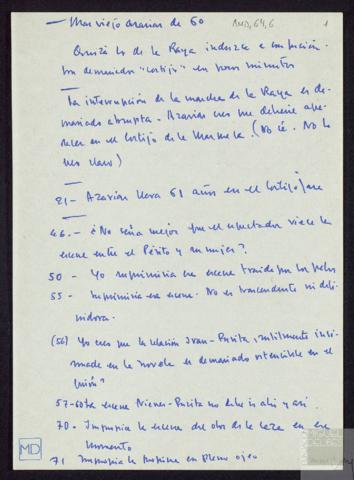 — Mas viejo Azarías de 60
AMD, 64, 6
1
Quizá lo de la Raya induzca a confusión.
Son demasiados "cortijos" en pocos minutos
La interrupción de la marcha de la Raya es de-
masiado abrupta. Azarías creo que debería apa-
recer en el Cortijo de la Marquesa. (No sé. No lo
veo claro)
21- Azarías lleva 61 años en el Cortijo
46.- ¿No sería mejor que el espectador viese la
escena entre el Périto y su mujer?
50 - Yo suprimiría esa escena traída por los pelos
55 - Suprimiría esa escena. No es trascendente ni defi-
nidora.
(56) Yo creo que la relación Ivan-Purita, sutilmente insi-
nuada en la novela es demasiado ostensible en el
guión?
57-60 La escena Nieves-Purita no debe ir ahí y así.
70 - Suprimiría la escena del olor de la caza en ese
momento
71 Suprimiría la propina en pleno ojeo
MD